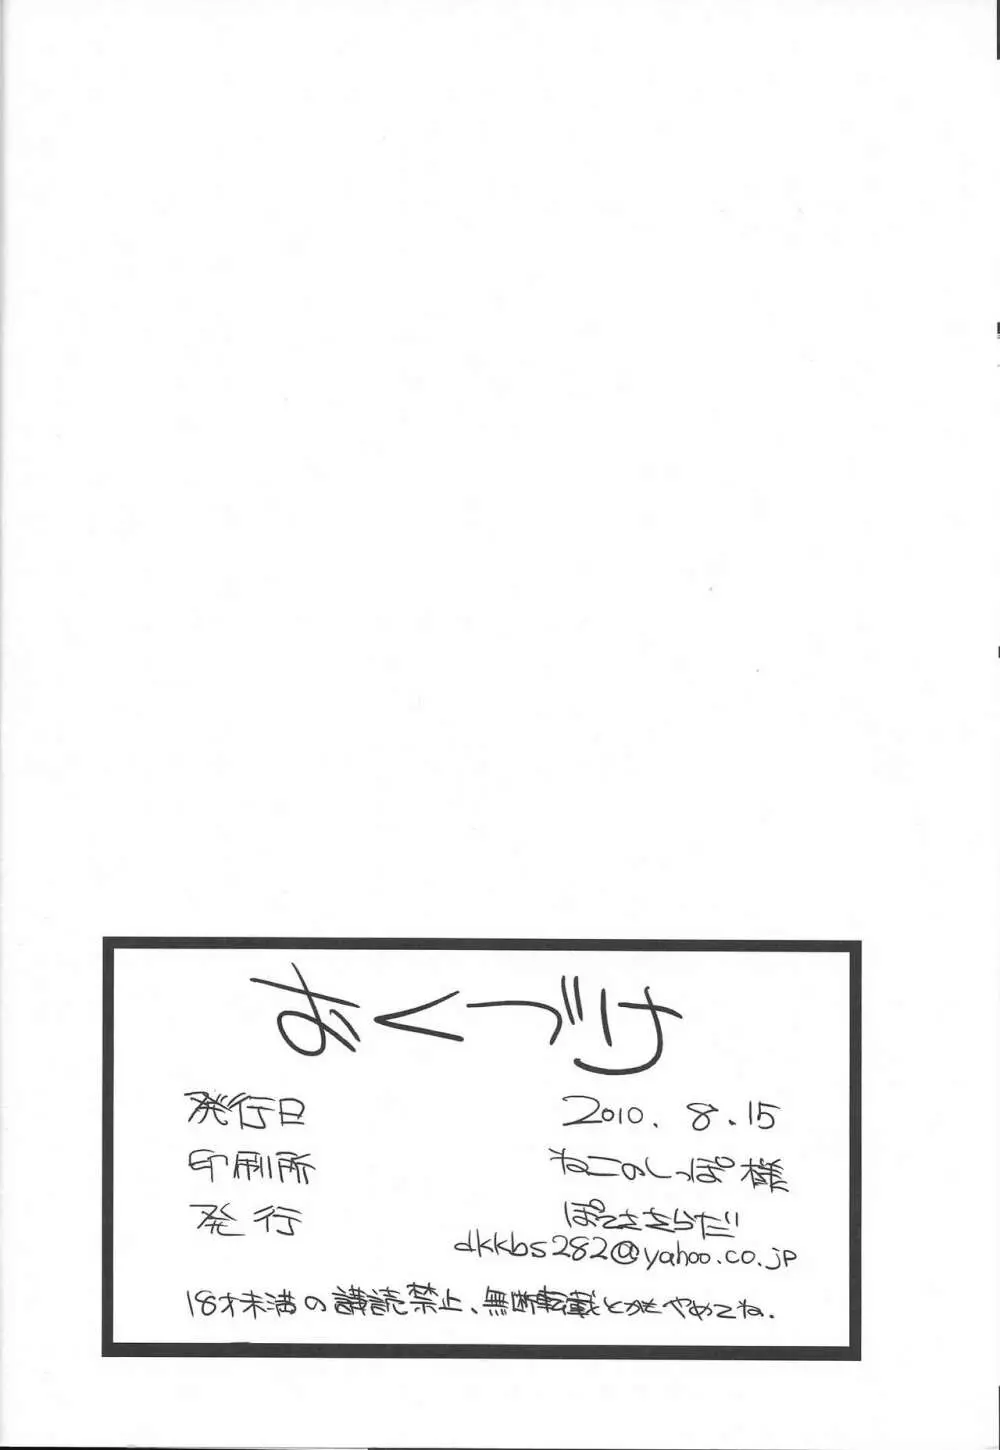 おくづけ
発行日 2010.8.15
印刷所 ねこのしっぽ様
発行 ぽてさらだ
dkkbs282@yahoo.co.jp
18才未満の講読禁止、無断転載とかもやめてね.